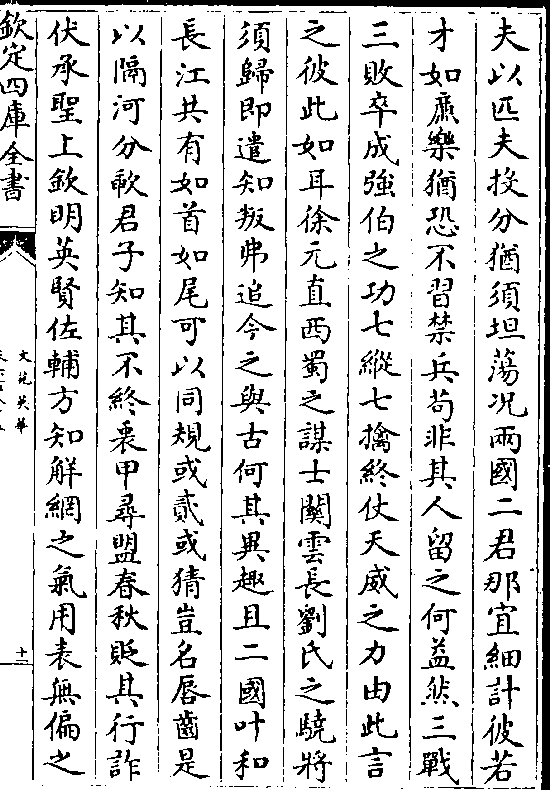 夫以匹夫投分猶須坦蕩况兩國二君那宜細計彼若
才如廉樂猶恐不習禁兵苟非其人留之何益然三戰
三敗卒成強伯之功七縱七擒終仗天威之力由此言
之彼此如耳徐元直西蜀之謀士闗雲長劉氏之驍將
須歸即遣知叛弗追今之與古何其異趣且二國叶和
長江共有如首如尾可以同規或貳或猜豈名唇齒是
以隔河分歃君子知其不終裹甲尋盟春秋貶其行詐
伏承聖上欽明英賢佐輔方知解網之氣用表無偏之
欽定四庫全書
文苑英華
十二